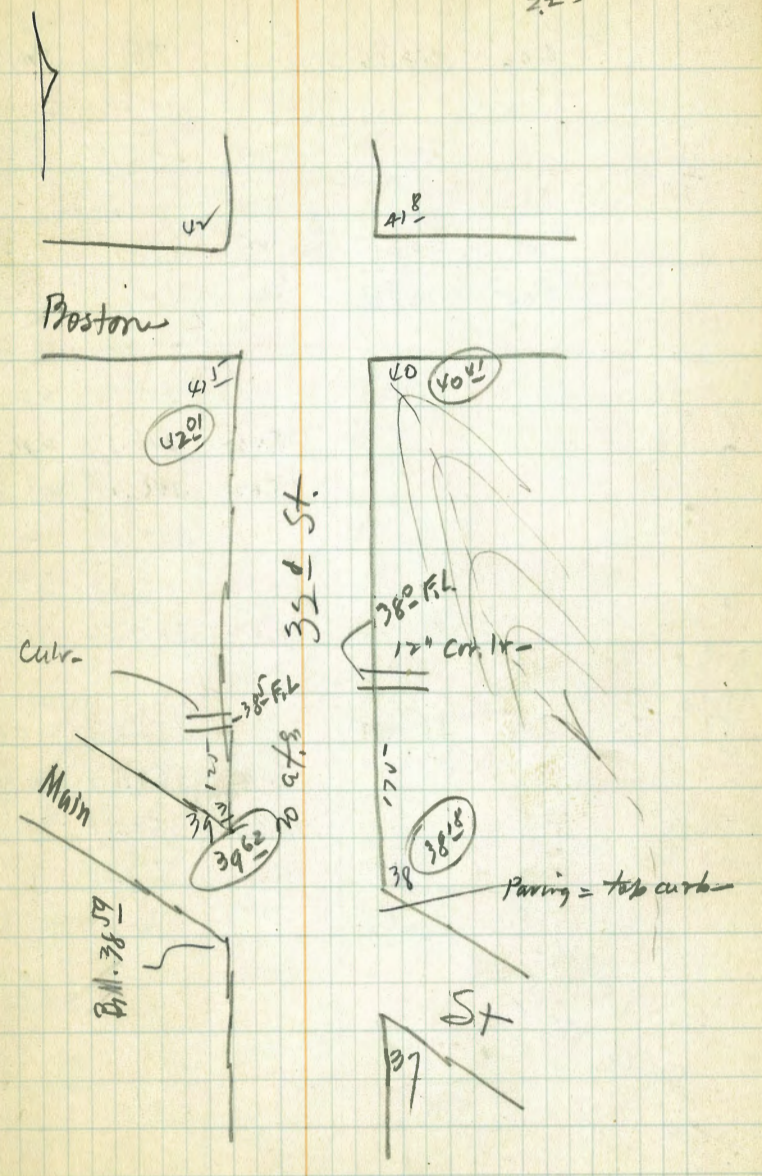 42
41 8
Boston
41 5
40
40 41
42 01
32 d St.
38 0 F.L.
12" Corr. Ir
Culv.
38 5 F.L.
125
Main
39 3
39 62
175
38 18
38
Paving = top curb
B.M. 38 59
St
37